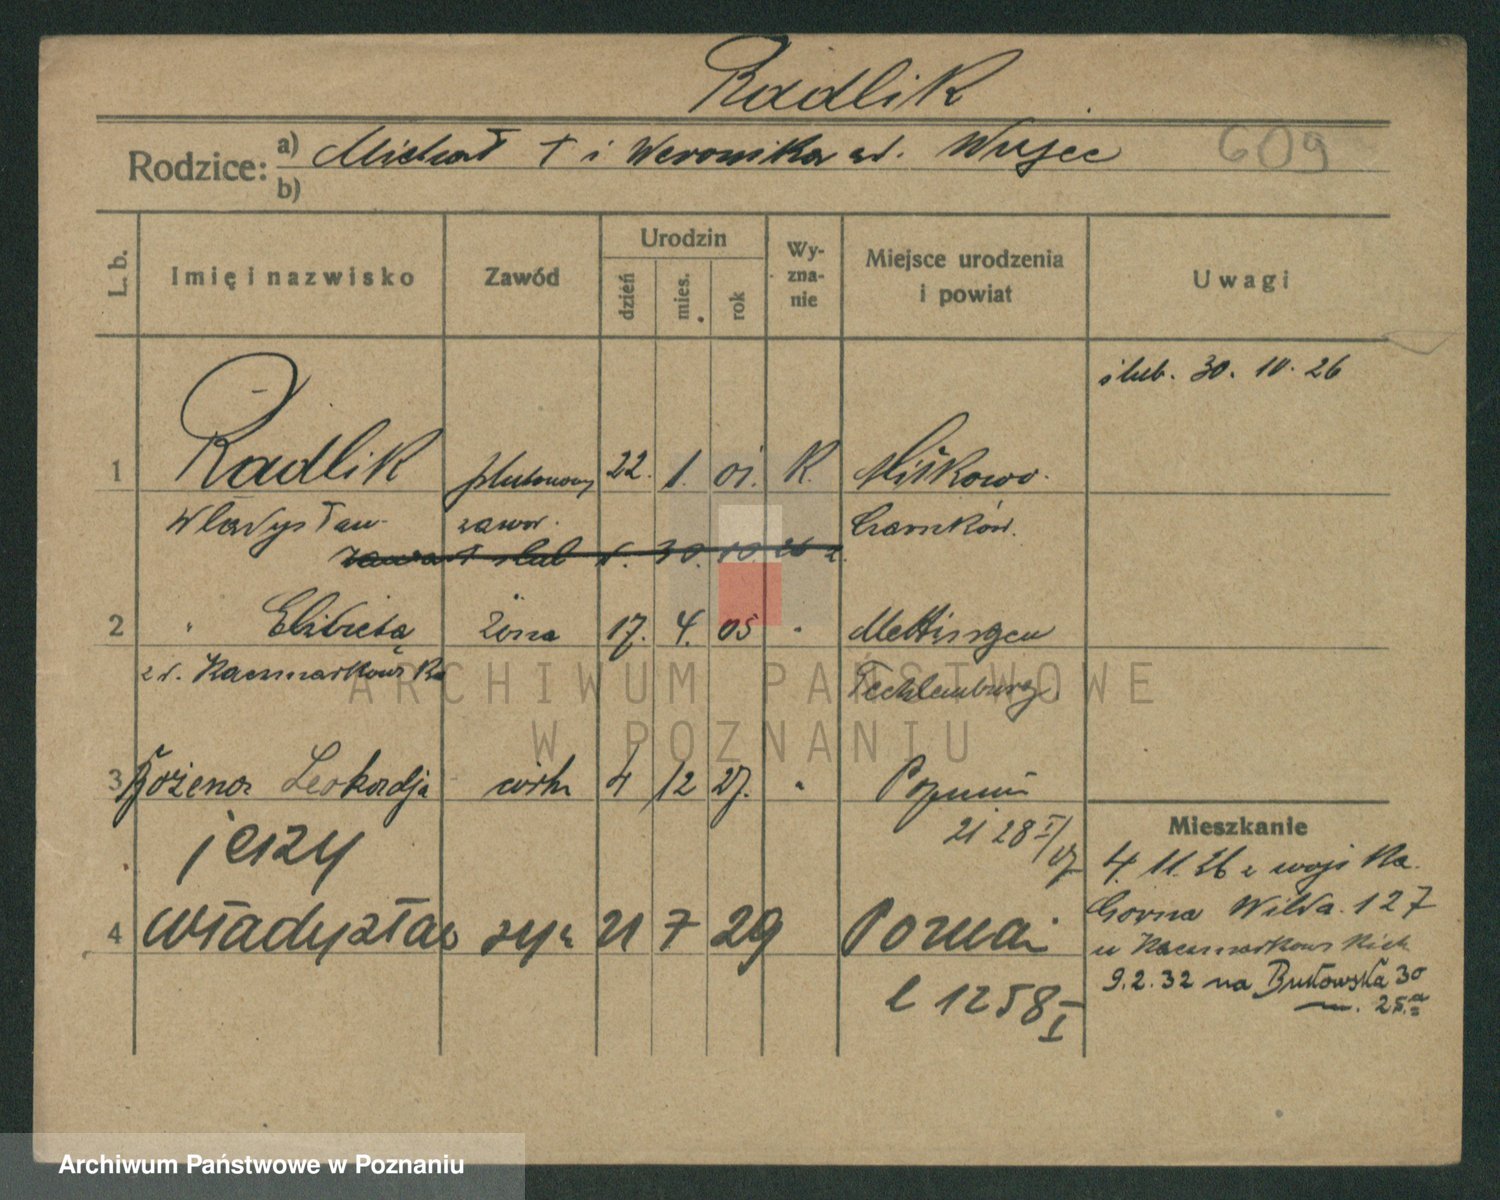 Radlik
Rodzice: a) Michał + i Weronika zd. Wujec 609
b)
L. b. Imię i nazwisko Zawód Urodzin dzień mies. rok Wy-zna-nie Miejsce urodzenia i powiat Uwagi
ślub. 30. 10. 26
1 Radlik plutonowy 22. 1. 01. K. Miłkowo.
Władysław zawod. Czarnków.
zawarł ślub d. 30. 10. 26 r.
2 " Elżbieta żona 17. 4. 05 " Mettingen
zd. Kaczmarkowska Tecklenburg
3 Bożena Leokadja córka 4 12 27. " Poznań
2128 I/27
Mieszkanie
jerzy
4. 11. 26 z wojska
Górna Wilda 127
4 władysław syn 21 7 29 Poznań
u Kaczmarkowskich
9.2.32 na Bukowska 30
l 1258 I
25.a
ARCHIWUM PAŃSTWOWE
W POZNANIU
Archiwum Państwowe w Poznaniu